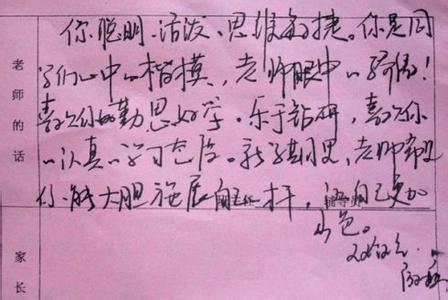 老师的话
你聪明、活泼、思维敏捷。你是同
学们心中的楷模，老师眼中的骄傲！
喜欢你的勤思好学、乐于钻研，喜欢你
的认真的学习态度。新学期里，老师希望
你能大胆施展自己，让自己更加
出色。
家长